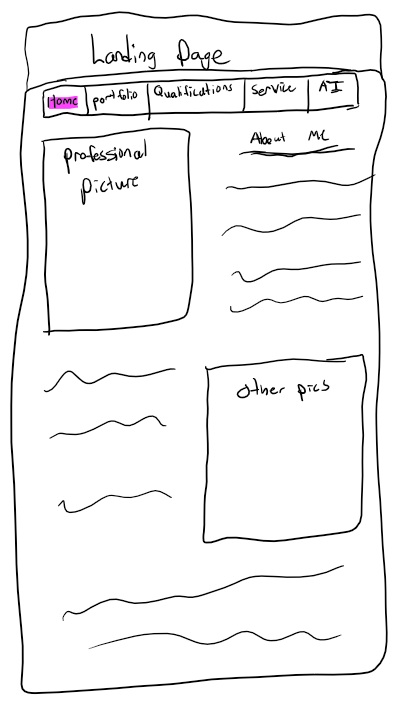 Landing Page
Home portfolio Qualifications Service AI
professional
picture
About Me
other pics